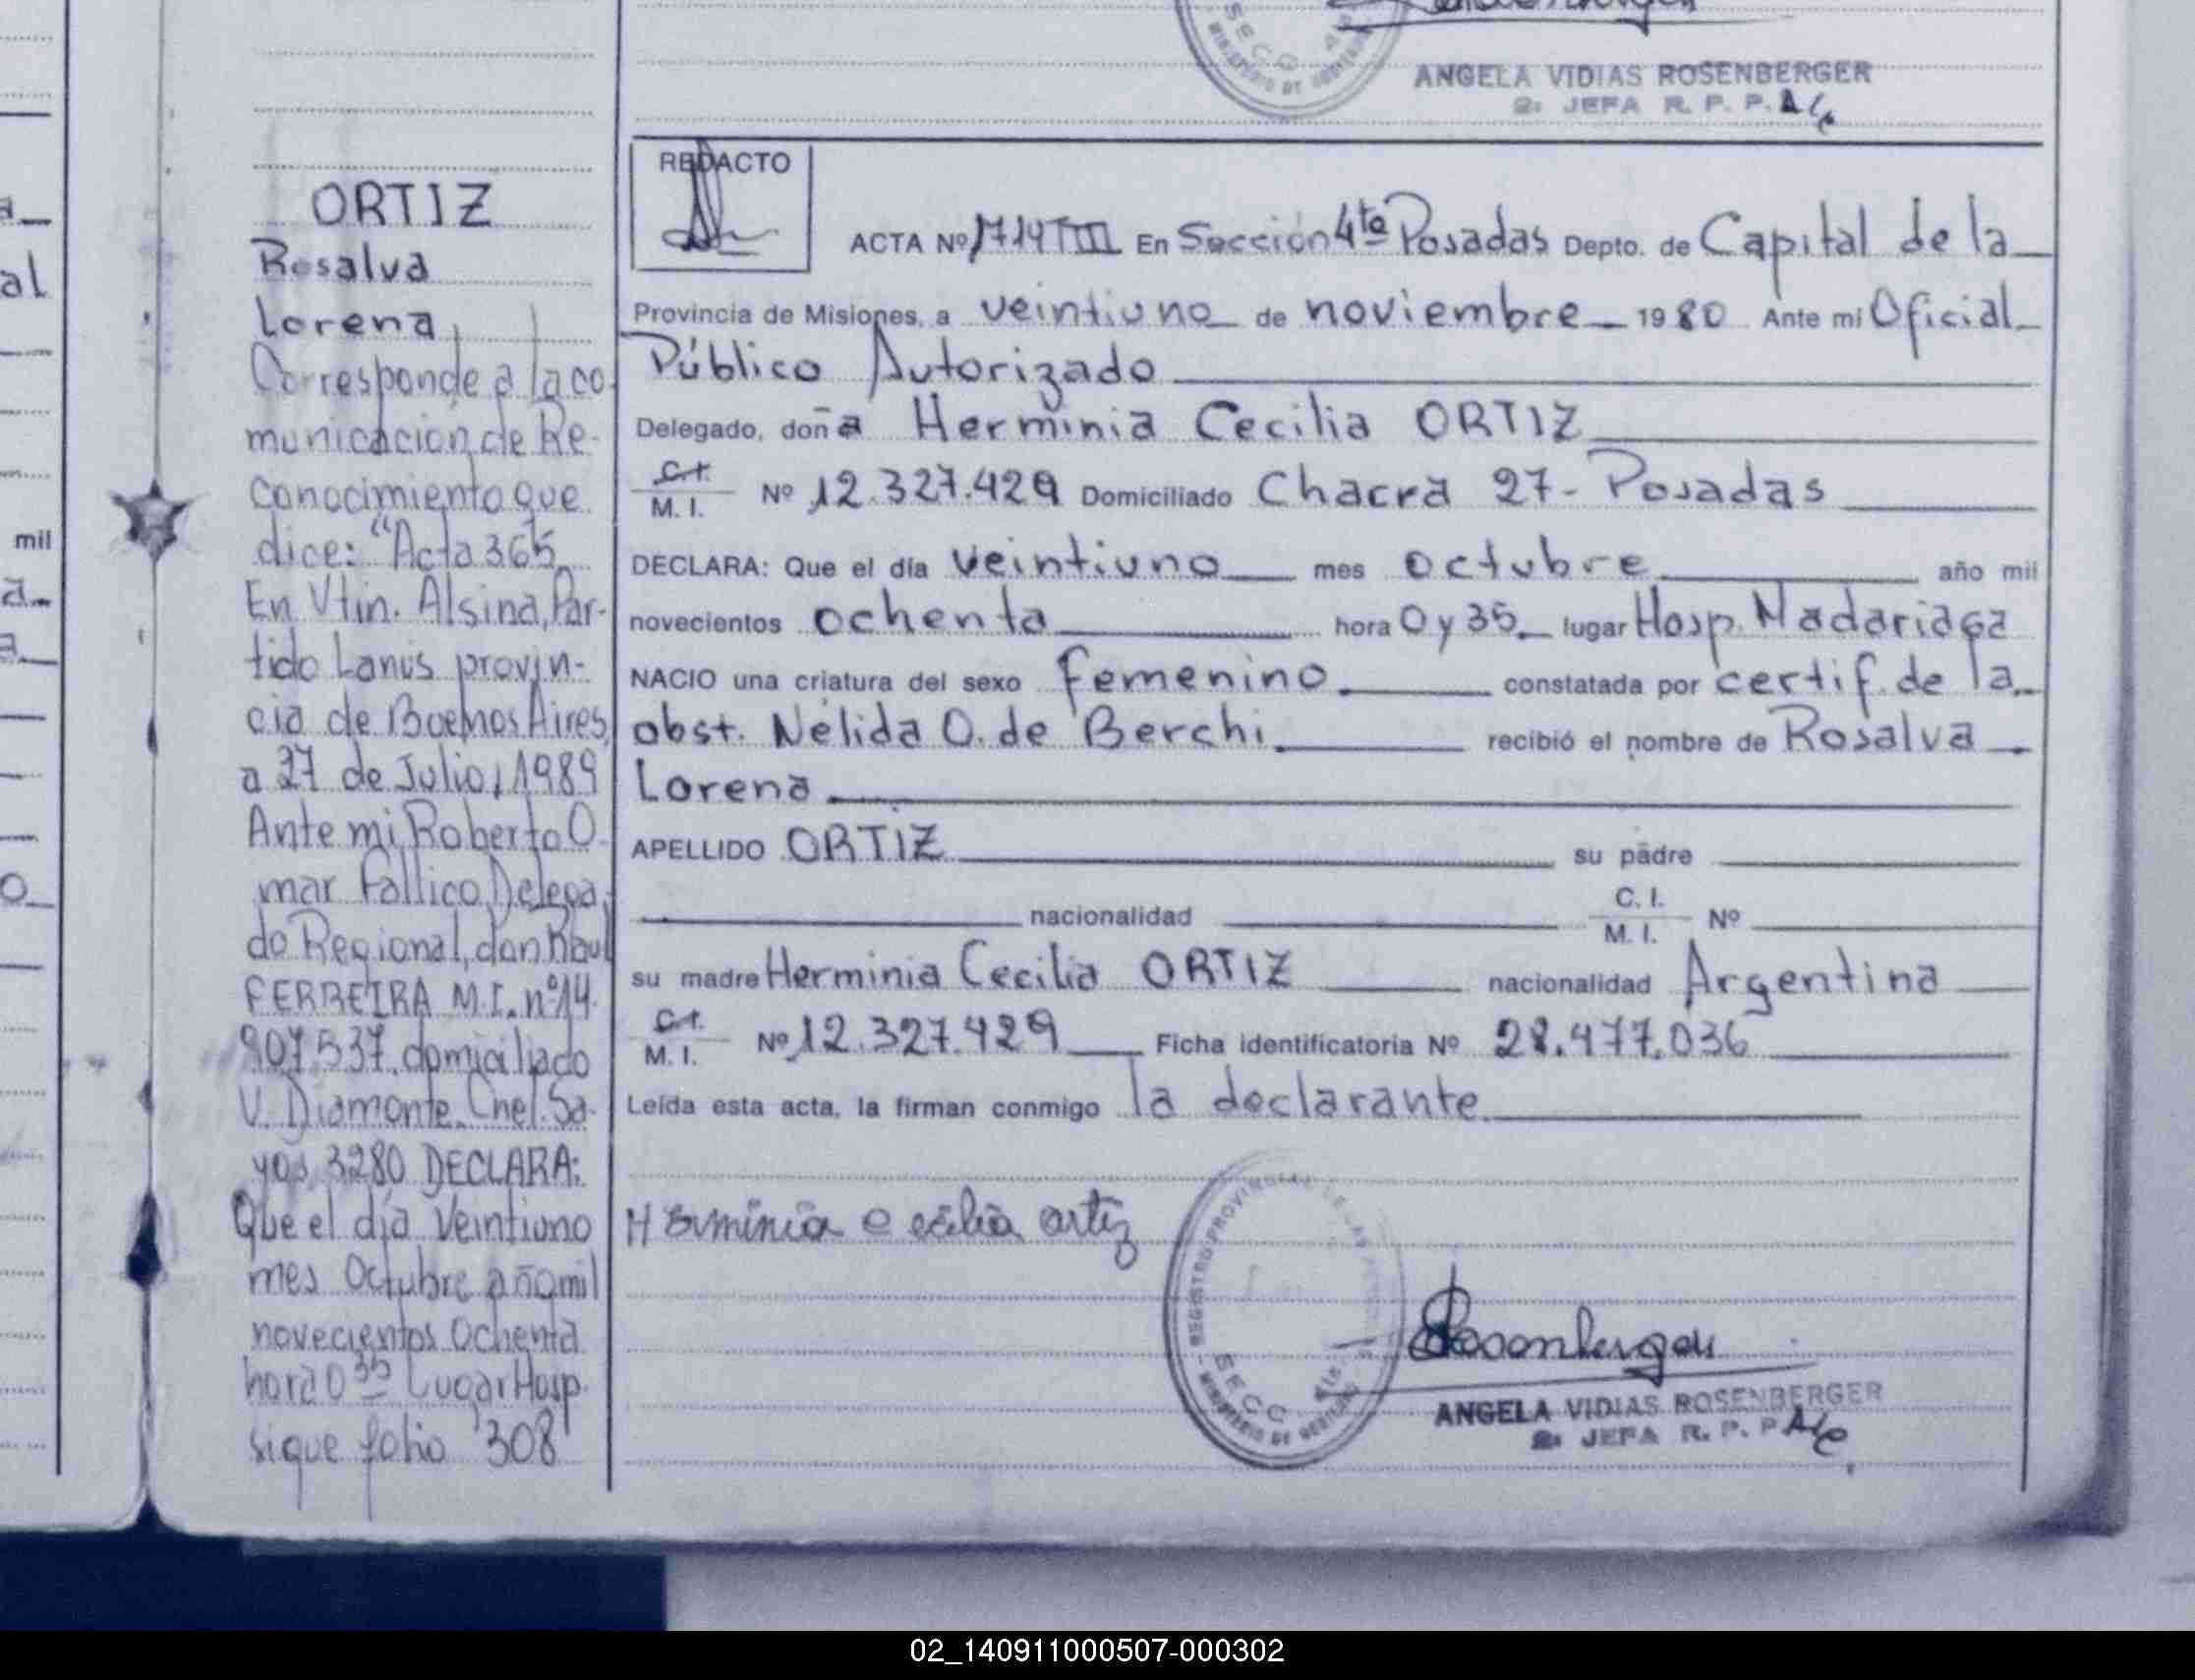 ANGELA VIDIAS ROSENBERGER
2a JEFA R. P. P.
ORTIZ
Rosalva
Lorena
Corresponde a la co-
municación de Re-
conocimiento que
dice: "Acta 365
En Vtin. Alsina, Par-
tido Lanús provin-
cia de Buenos Aires,
a 27 de Julio, 1989
Ante mi Roberto O-
mar Fallico Delega-
do Regional, don Raul
FERREIRA M.I. nº 14.
907.537. domiciliado
V. Diamante. Cnel. Sa-
yos 3280 DECLARA:
Que el día Veintiuno
mes Octubre año mil
novecientos Ochenta
hora 0 35 Lugar Hosp.
sigue folio 308
REDACTO
ACTA Nº 1714 T III En Sección 4ta Posadas Depto. de Capital de la
Provincia de Misiones, a veintiuno de noviembre 1980 Ante mi Oficial
Público Autorizado
Delegado, doña Herminia Cecilia ORTIZ
C.I.
M. I. Nº 12.327.429 Domiciliado Chacra 27- Posadas
DECLARA: Que el día veintiuno mes octubre año mil
novecientos ochenta hora 0 y 35 lugar Hosp. Madariaga
NACIO una criatura del sexo femenino constatada por certif. de la
obst. Nélida O. de Berchi recibió el nombre de Rosalva
Lorena
APELLIDO ORTIZ su padre
nacionalidad C. I.
M. I. Nº
su madre Herminia Cecilia ORTIZ nacionalidad Argentina
C.I.
M. I. Nº 12.327.429 Ficha identificatoria Nº 28.477.036
Leída esta acta, la firman conmigo la declarante
Herminia Cecilia ortiz
REGISTRO PROVINCIAL DE LAS
SECC 4ta
MINISTERIO DE GOBIERNO
Rosenberger
ANGELA VIDIAS ROSENBERGER
2a JEFA R. P. P.
mil
02_140911000507-000302